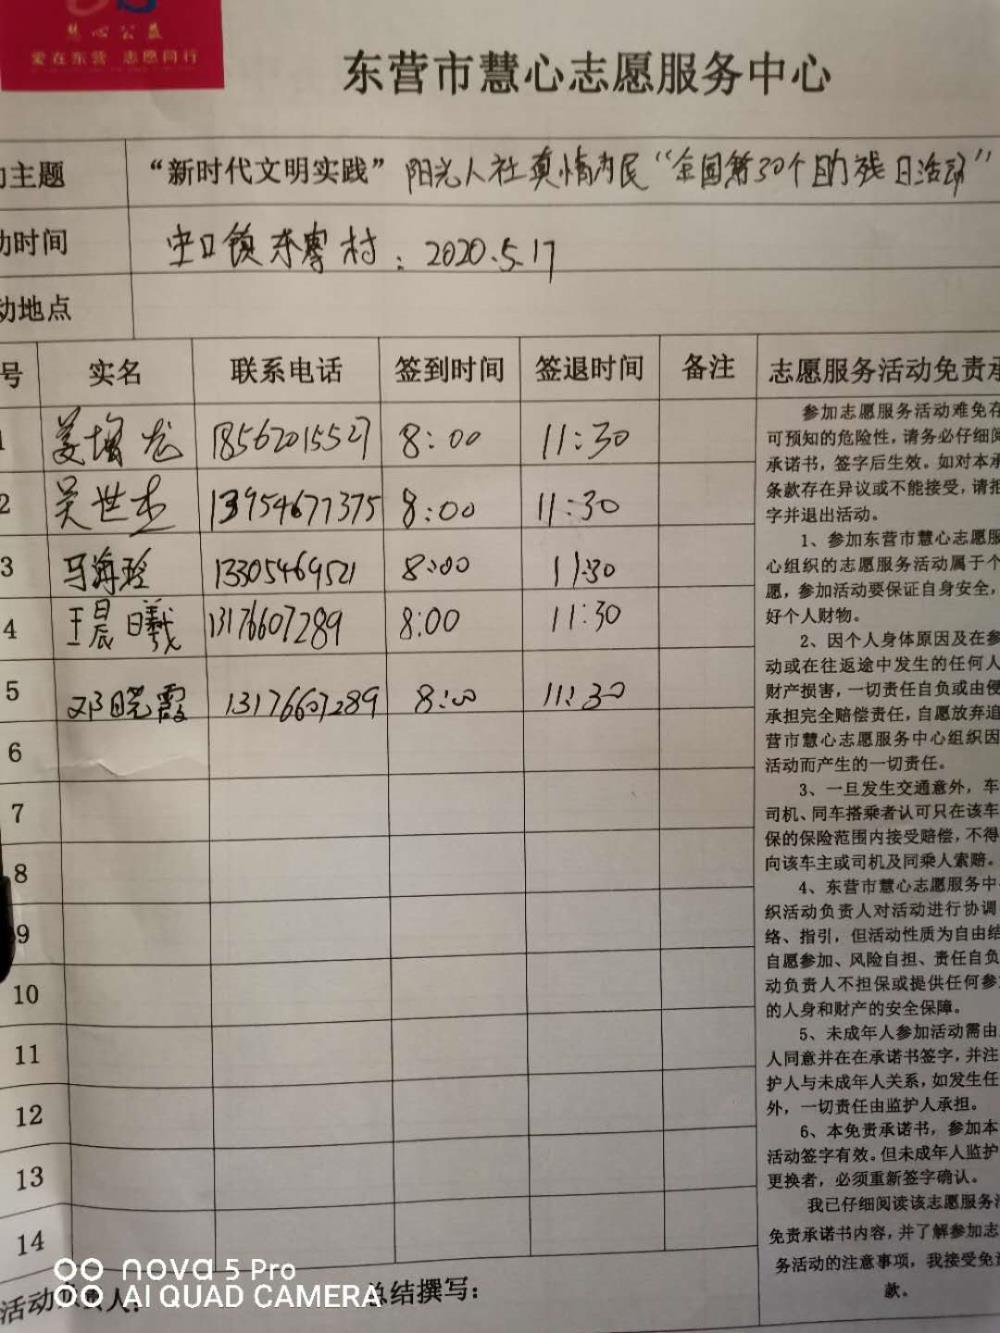 慧心公益
爱在东营 志愿同行
东营市慧心志愿服务中心
主题 “新时代文明实践” 阳光人社真情为民“全国第30个助残日活动”
动时间 宝口镇东 村:2020.5.17
动地点
号 实名 联系电话 签到时间 签退时间 备注 志愿服务活动免责承
1 姜增龙 18562015527 8:00 11:30
2 吴世杰 13954677375 8:00 11:30
3 马海玲 13305469521 8:00 11:30
4 王晨曦 13176607289 8:00 11:30
5 邓晓霞 13176607289 8:00 11:30
6
7
8
9
10
11
12
13
14
参加志愿服务活动难免存
可预知的危险性,请务必仔细阅
承诺书,签字后生效。如对本承
条款存在异议或不能接受,请拒
字并退出活动。
1、参加东营市慧心志愿服
心组织的志愿服务活动属于个
愿,参加活动要保证自身安全,
好个人财物。
2、因个人身体原因及在参
动或在往返途中发生的任何人
财产损害,一切责任自负或由侵
承担完全赔偿责任,自愿放弃追
营市慧心志愿服务中心组织因
活动而产生的一切责任。
3、一旦发生交通意外,车
司机、同车搭乘者认可只在该车
保的保险范围内接受赔偿,不得
向该车主或司机及同乘人索赔。
4、东营市慧心志愿服务中
织活动负责人对活动进行协调
络、指引,但活动性质为自由结
自愿参加、风险自担、责任自负
动负责人不担保或提供任何参
的人身和财产的安全保障。
5、未成年人参加活动需由
人同意并在在承诺书签字,并注
护人与未成年人关系,如发生任
外,一切责任由监护人承担。
6、本免责承诺书,参加本
活动签字有效。但未成年人监护
更换者,必须重新签字确认。
我已仔细阅读该志愿服务活
免责承诺书内容,并了解参加志
务活动的注意事项,我接受免责
款。
活动负责人: 总结撰写:
nova 5 Pro
AI QUAD CAMERA